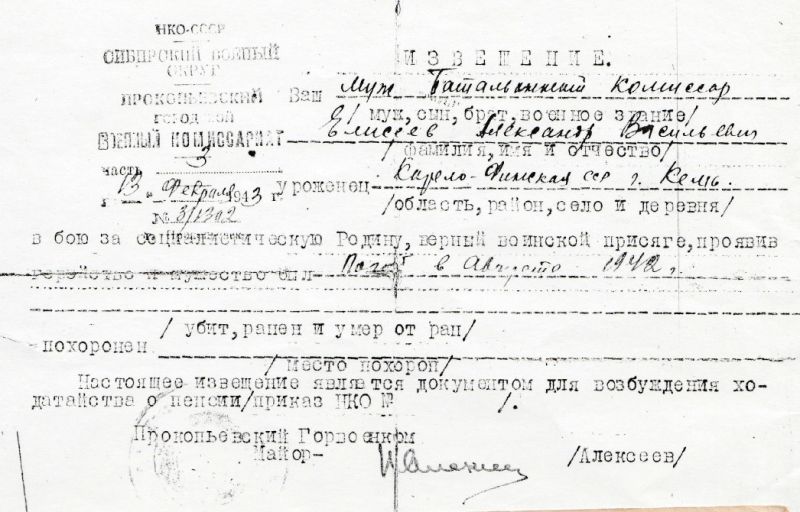 НКО-СССР
СИБИРСКИЙ ВОЕННЫЙ
ОКРУГ
ПРОКОПЬЕВСКИЙ
ГОРОДСКОЙ
ВОЕННЫЙ КОМИССАРИАТ
часть 3
"13" Февраля 1943 г.
№ 3/1302
ИЗВЕЩЕНИЕ.
Ваш муж Батальонный Комиссар
/муж, сын, брат, военное звание/
Елисеев Александр Васильевич
/фамилия, имя и отчество/
уроженец Карело-Финская сср г. Кемь.
/область, район, село и деревня/
в бою за социалистическую Родину, верный воинской присяге, проявив
геройство и мужество был Погиб в Августе 1942 г.
/убит, ранен и умер от ран/
похоронен
/место похорон/
Настоящее извещение является документом для возбуждения хо-
датайства о пенсии/приказ НКО № /.
Прокопьевский Горвоенком
Майор- /Алексеев/